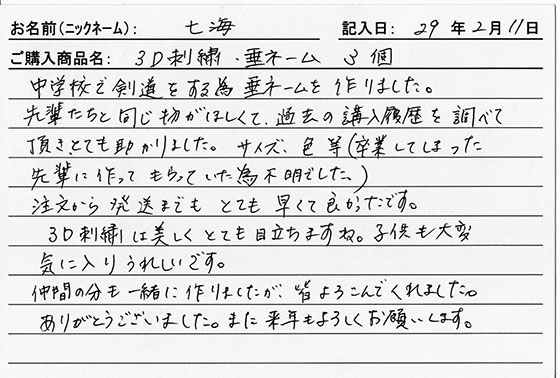 お名前(ニックネーム): 七海 記入日: 29 年 2 月 11 日
ご購入商品名: 3D刺繍・垂ネーム 3個
中学校で剣道をする為垂ネームを作りました。
先輩たちと同じ物がほしくて、過去の講入履歴を調べて
頂きとても助かりました。サイズ、色等(卒業してしまった
先輩に作ってもらっていた為不明でした。)
注文から発送までもとても早くて良かったです。
3D刺繍は美しくとても目立ちますね。子供も大変
気に入りうれしいです。
仲間の分も一緒に作りましたが、皆よろこんでくれました。
ありがとうございました。また来年もよろしくお願いします。